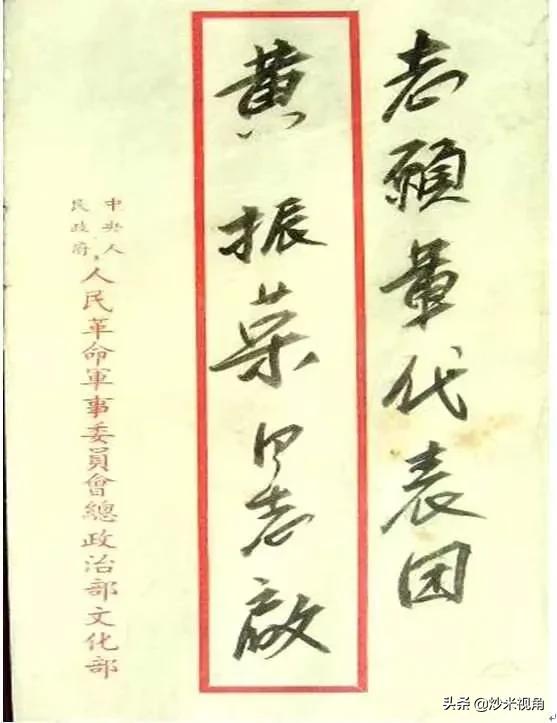 志願軍代表团
黄振荣同志啟
中央人
民政府
人民革命軍事委員會總政治部文化部
头条 @炒米视角